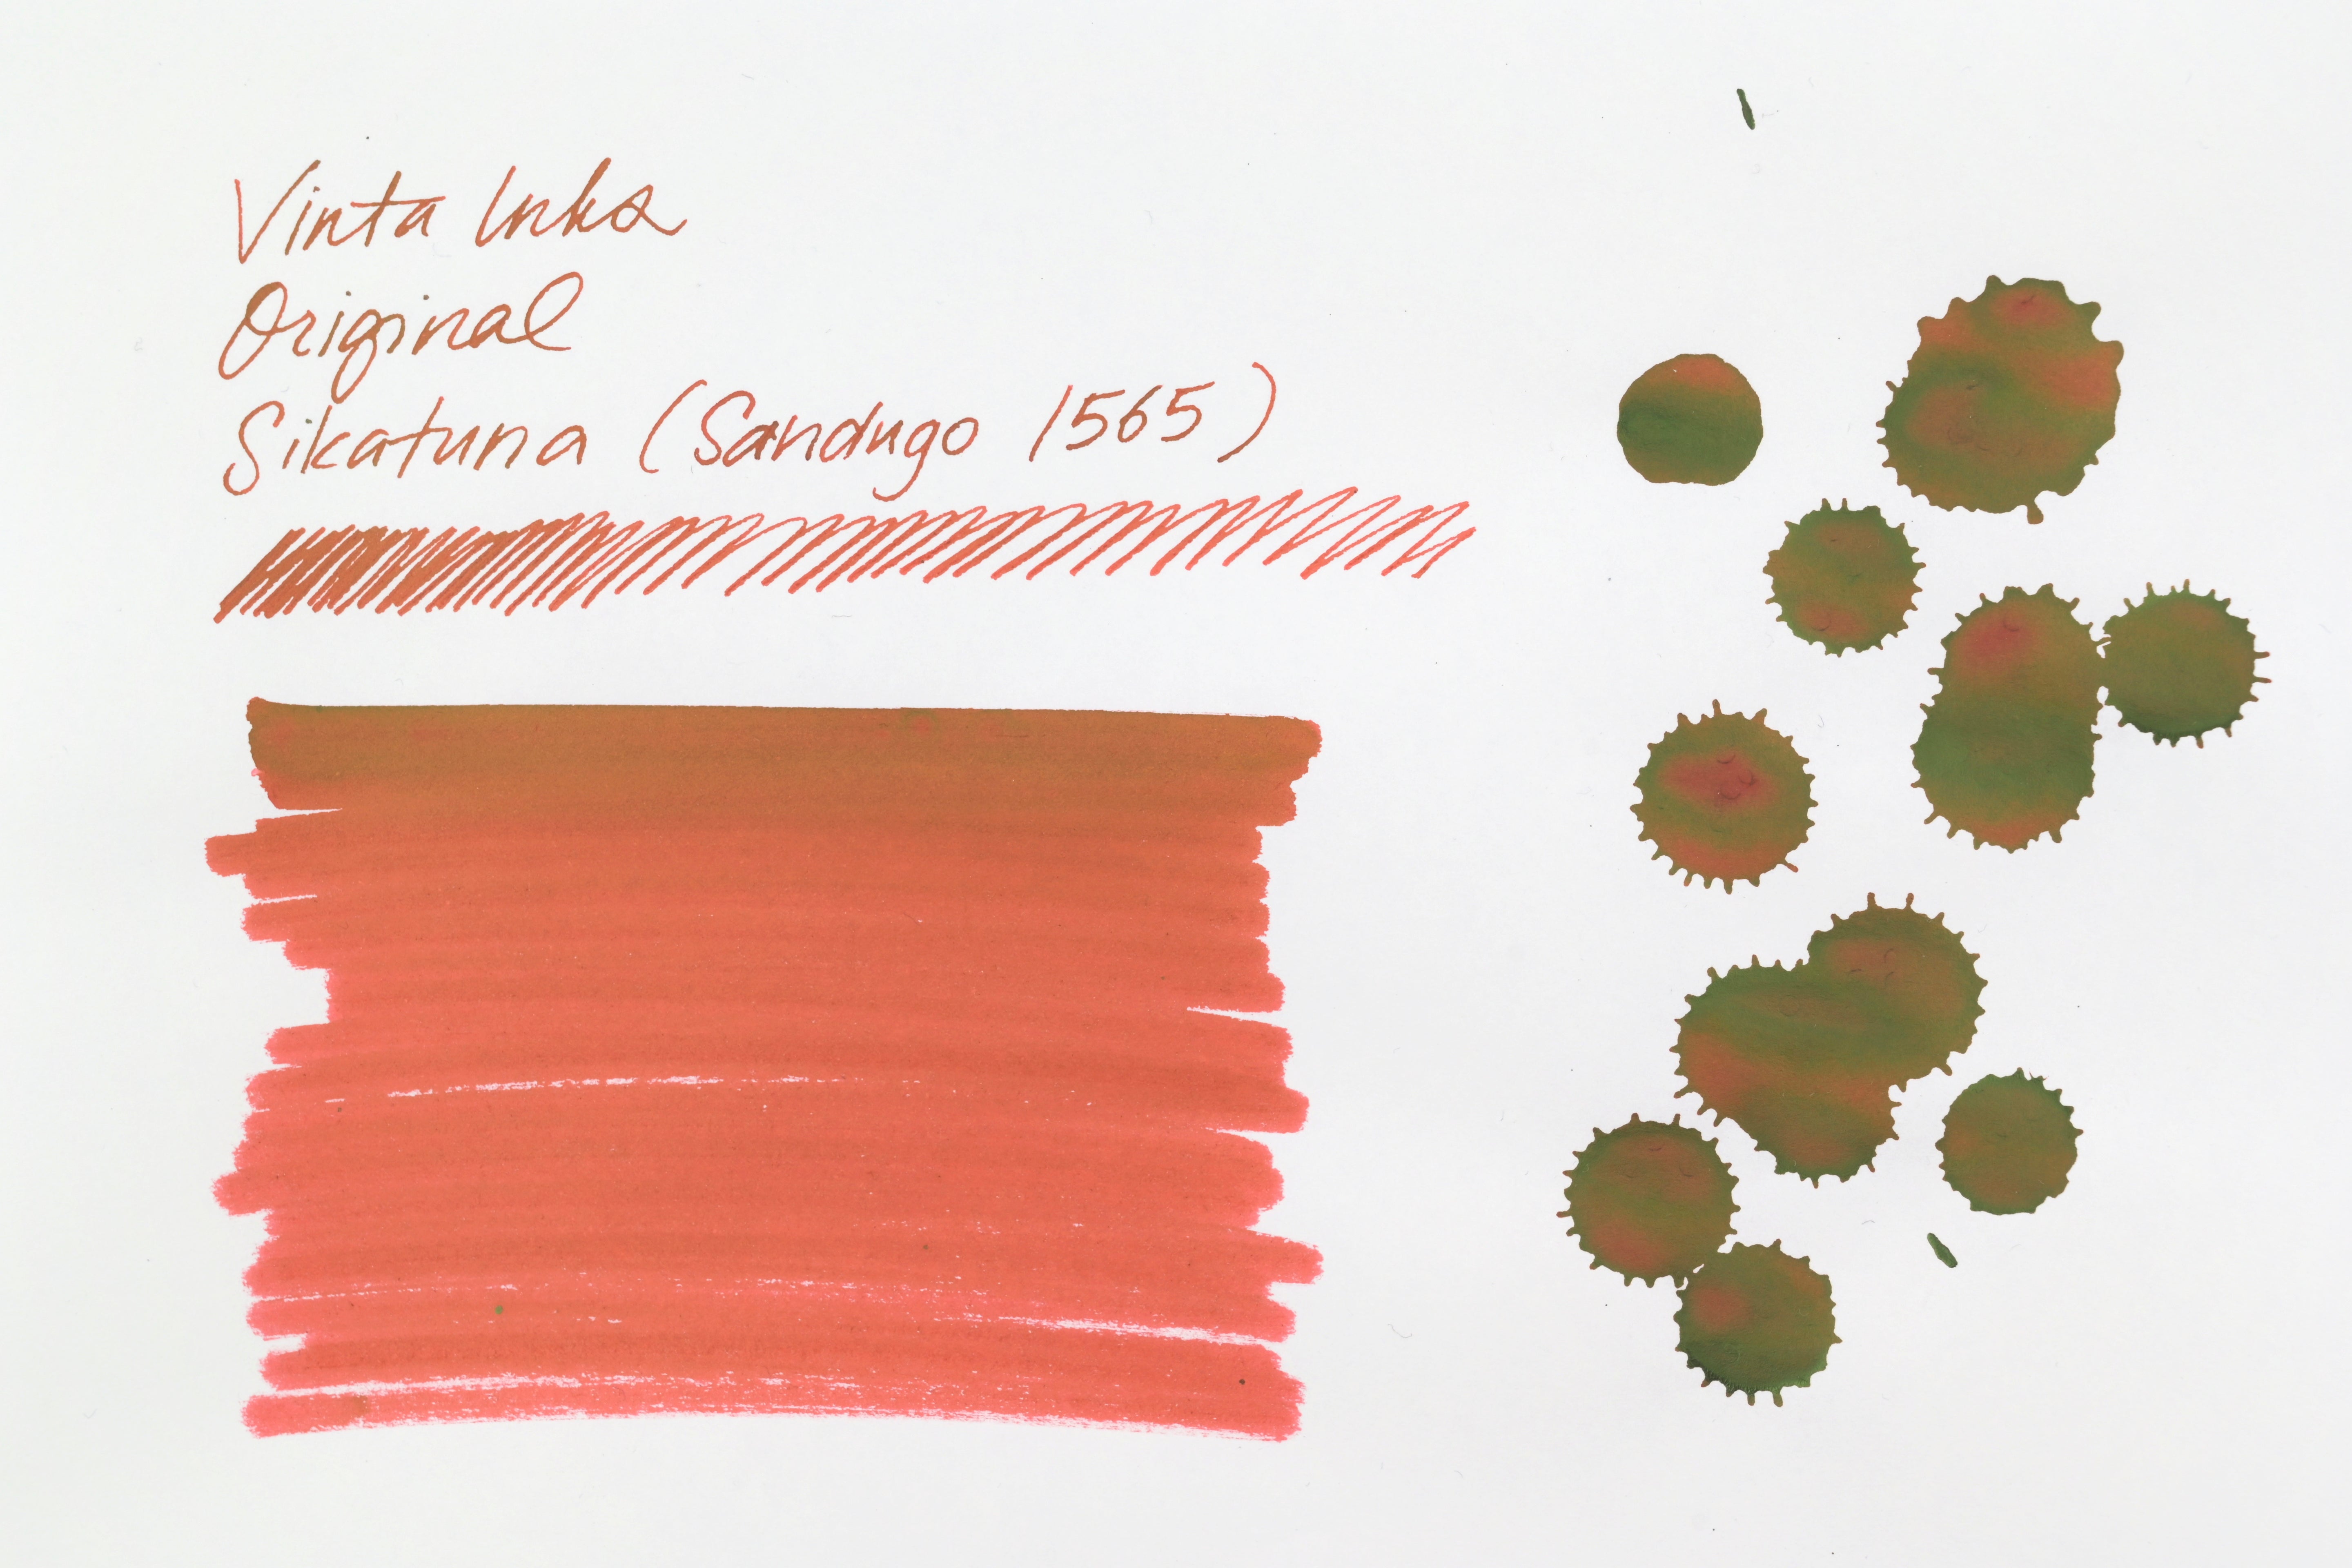 Vinta Inks
Original
Sikatuna (Sandugo 1565)